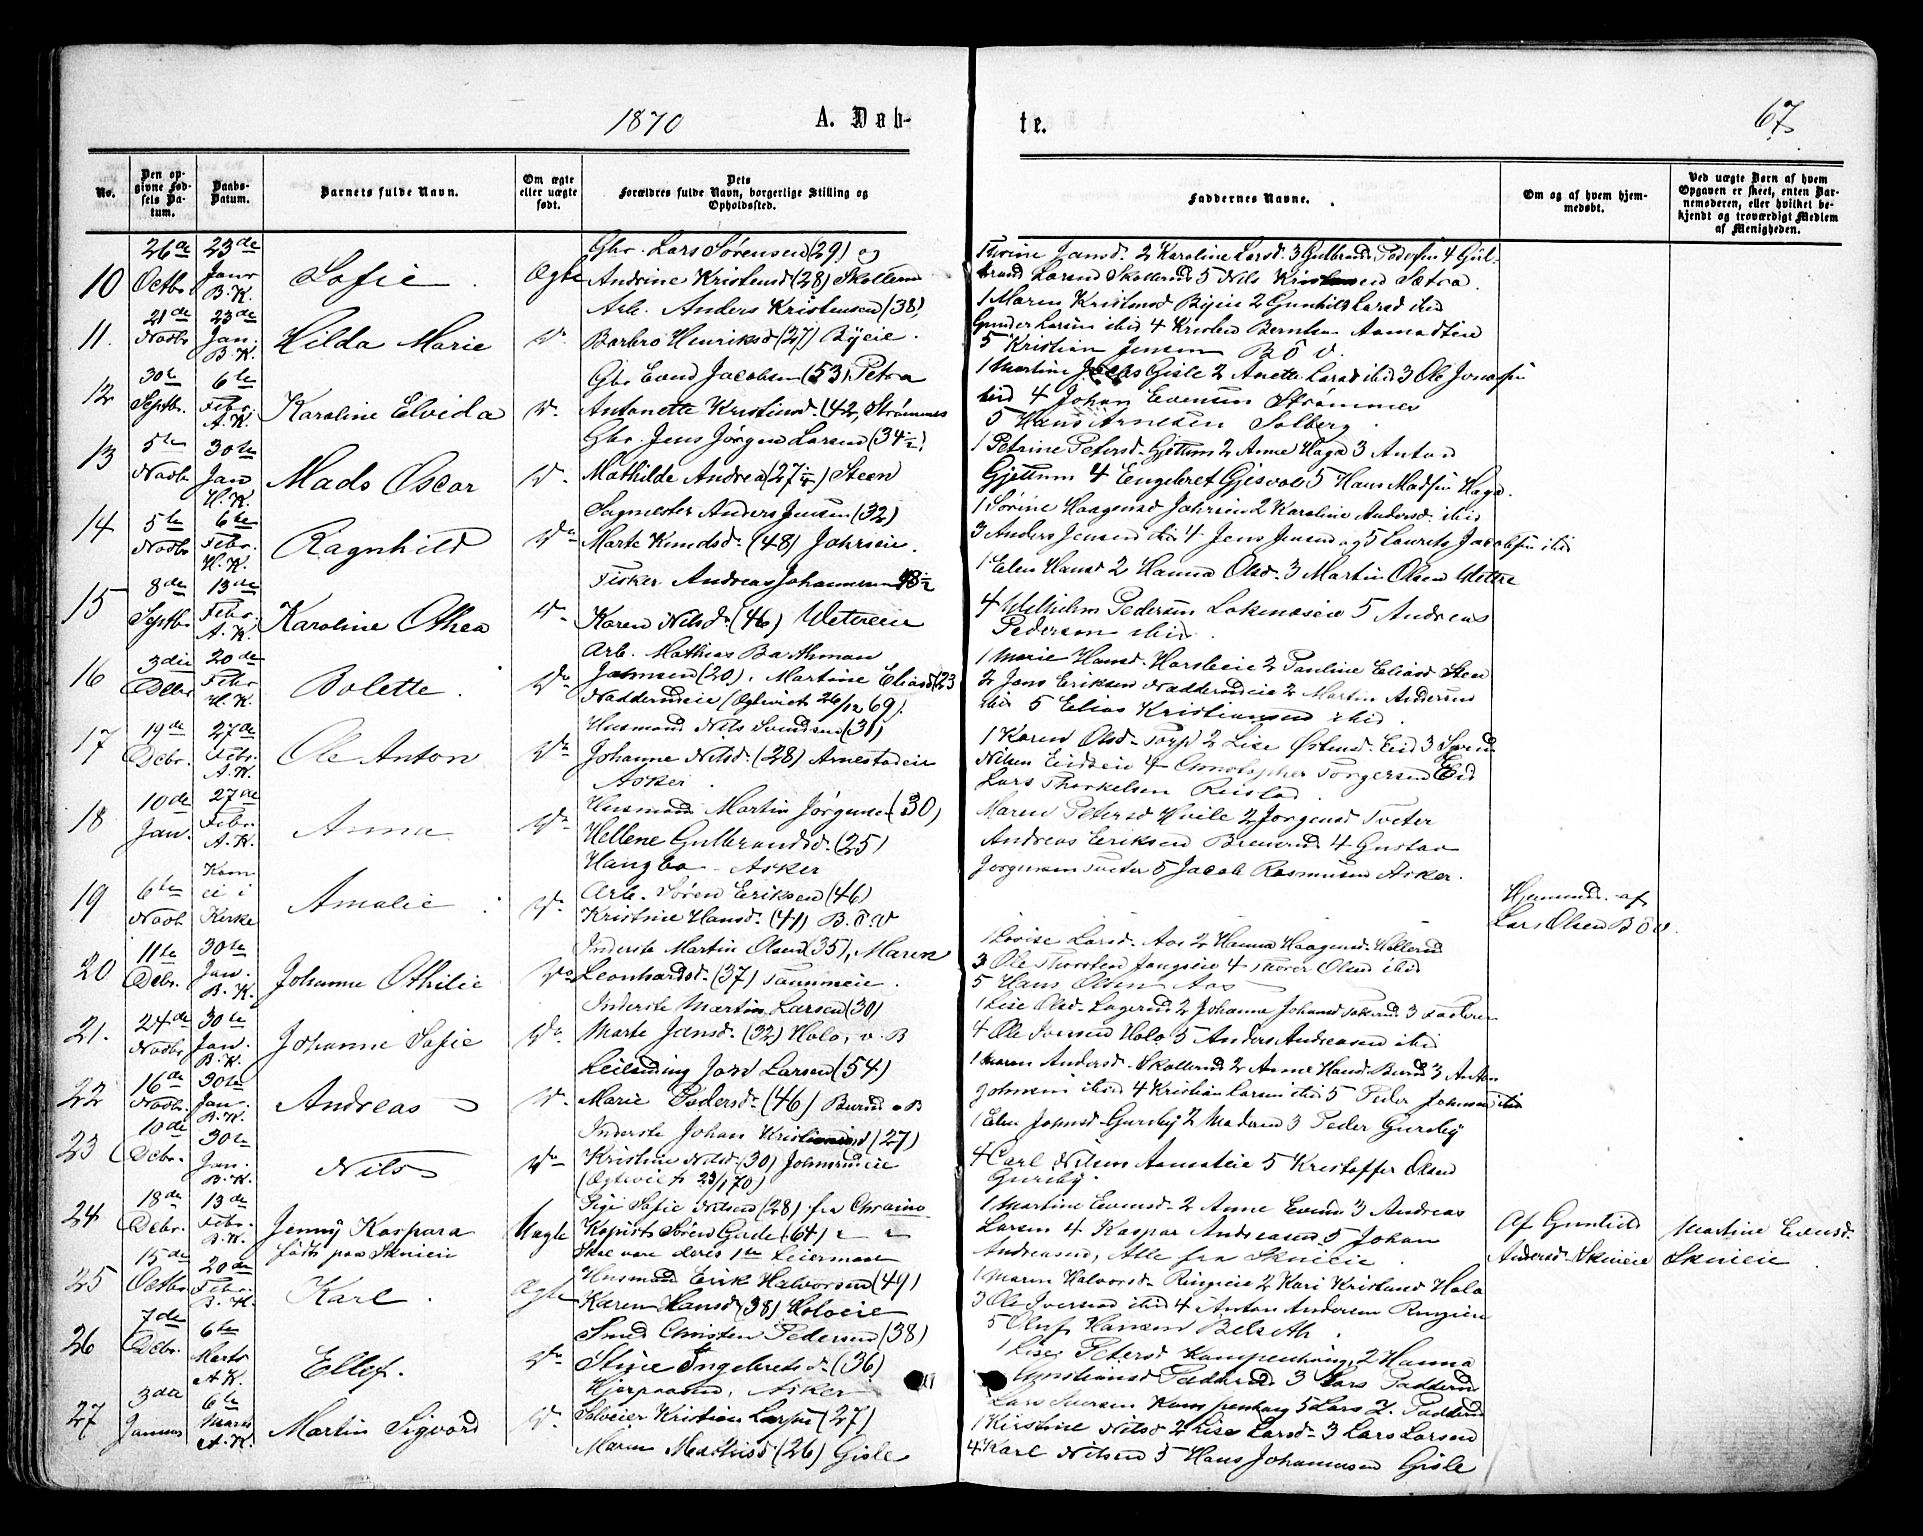 1870
A. Døb-
te.
67
No.
Den op-
givne Fød-
sels Da-
tum.
Daabs-
Datum.
Barnets fulde Navn.
Om ægte
eller uægte
født.
Dets
Forældres fulde Navn, borgerlige Stilling og
Opholdssted.
Faddernes Navne.
Om og af hvem hjem-
medøbt.
Ved uægte Børn af hvem
Opgaven er skeet, enten Bar-
nemoderen, eller hvilket be-
kjendt og troværdigt Medlem
af Menigheden.
10
26de
Octbr
23de
Janr
B.K.
Sofie
Ægte
Gbr. Lars Sørensen (29) og
Andrine Kristensd (28) Skollerud
Thrine Jansd. 2 Karoline Larsd. 3 Gulbrand Pedersen 4 Gul-
brand Larsen Skollerud 5 Nils Kristensen Sætra.
11.
21de
Novbr
23de
Jan.
B.K.
Hilda Marie
Do.
Arb. Anders Kristensen (38)
Barbro Henriksd (27) Byeie.
1 Maren Kristensd Byeie 2 Gunhild Larsd ibid
Gunder Larsen ibid 4 Kristen Berntsen Aamodteie
5 Kristian Jensen B ö V.
12
30te
Septbr.
6te
Febr.
A.K.
Karoline Elvida
Do.
Gbr Evend Jacobsen (53), Petra
Antonette Kristensd. (42, Strømmes
1 Martine Gisle 2 Anette Larsd ibid 3 Ole Jonassen
ibid 4 Johan Evensen Strømmes
5 Hans Arnesen Solberg.
13
5te
Novbr
30te
Jan
H.K.
Mads Oscar
Do.
Gbr. Jens Jørgen Larsen (34 1/2)
Mathilde Andrea (27 1/4) Steen
1 Petrine Petersd. Gjettum 2 Anne Haga 3 Anton
Gjettum 4 Engebret Gjesvold 5 Hans Madsen Haga.
14
5te
Novbr
6te
Febr.
H.K.
Ragnhild
Do
Sagmester Anders Jensen (32)
Marte Knudsd. (48) Johrseie.
1 Sørine Haagensd Johrseie 2 Karoline Andersd. ibid
3 Anders Jensen ibid 4 Jens Jensen og 5 Laurits Jacobsen ibid
15
8de
Septbr
13de
Febr.
A.K.
Karoline Othea
Do.
Fisker Andreas Johannesen 48 1/2
Karen Nilsd. (46) Wettreeie
1 Elen Hansd 2 Hanna Olsd. 3 Martin Olsen Wettre
4 Wilhelm Pedersen Loknæseie 5 Andreas
Pedersen ibid.
16
3die
Debr
20de
Febr
H.K.
Bolette.
Do.
Arb. Mathias Barthman
Jahnsen (20), Martine Eliasd (23
Nadderudeie (Ægteviet 26/12 69).
1 Marie Hansd. Harsleeie 2 Pauline Eliasd Steen
2 Jens Eriksen Nadderudeie 2 Martin Andersen
ibid 5 Elias Kristiansen ibid.
17
19de
Debr.
27de
Febr.
A.K.
Ole Anton
Do
Husmand Nils Svendsen (31)
Johanne Nilsd. (28) Arnestadeie
Asker.
1 Karen Olsd. Torp 2 Lise Østensd. Eid 3 Svend
Nilsen Eidseie 4 Christopher Torgersen Eid
Lars Thorkelsen Reistad.
18
10de
Jan.
27de
Febr.
A.K.
Anna
Do.
Husmand Martin Jørgensen (30)
Hellene Gulbrandsd. (25)
Haugbo Asker
Maren Petersd Hvile 2 Jorgensd Tveter
Andreas Eriksen Brenerud 4 Gustav
Jørgensen Tveter 5 Jacob Rasmussen Asker.
19
6te
Novb.
Kom
ei i
Kirke
Amalie
Do.
Arb. Søren Eriksen (46)
Kristine Hansd. (41) B. ö. V
Hjemmed. af
Lars Olsen B ö V.
20
11te
Debr.
30te
Jan.
B.K.
Johanne Othilie
Do
Inderste Martin Olsen (35), Maren
Leonhardsd. (37) Tanumeie.
1 Lovise Larsd. Aas 2 Hanna Haagensd. Hellerud
3 Ole Thorsten Jongseie 4 Thorer Olsen ibid
5 Hans Olsen Aas
21.
24de
Novbr
30te
Jan.
B.K.
Johanne Sofie
Do
Inderste Martin Larsen (30)
Marte Jansd. (32) Holo, v. B
1 Lise Olsd. Lagerud 2 Johanne Johansd 3 Faderen
4 Ole Iversen Holo 5 Anders Andreasen ibid
22
16de
Novbr
30te
Jan.
B.K.
Andreas
Do.
Leilending Jon Larsen (54)
Marie Pedersd. (46) Burud v B
1 Maren Andersd. Skollerud 2 Anne Hansd. Burud 3 Anton
Johnsen ibid 4 Kristian Larsen ibid 5 Peder Johnsen ibid
23
10de
Debr.
30te
Jan.
B.K.
Nils
Do
Inderste Johan Kristiansen (27)
Kristine Nilsd. (30) Johnsrudeie
(Ægteviet 23/1 70)
1 Elen Johnsd. Gursby 2 Moderen 3 Peder Gursby
4 Carl Nilsen Aamoteie 5 Kristoffer Olsen
Gursby.
24
18de
Debr.
13de
Febr.
B.K.
Jenny Kaspara
født paa Skuieie
Uægte
Pige Sofie Nilsen (28) fra Chraina
Kopist Søren Gude (64) " "
Skal være deres 1ste Leiermaal
1 Martine Evensd. 2 Anne Evensd 3 Andreas
Larsen 4 Kaspar Andreasen 5 Johan
Andreasen, Alle fra Skuieie.
Af Gunhild
Andersd. Skuieie
Martine Evensd.
Skuieie
25
15de
Octbr
20de
Febr.
B.K.
Karl.
Ægte
Husmand Erik Halvorsen (49)
Karen Hansd (38) Holoeie
1 Maren Halvorsd. Ringieie 2 Kari Kristensd Holo
3 Ole Iversen ibid 4 Anton Andersen Ringieie
5 Oluf Hansen Belseth.
26
7de
Debr.
6te
Marts
A.K.
Ellef.
Do
Smed Christen Pedersen (38)
Stine Ingebretsd. (36)
Asker
1 Lise Petersd Kampenhaug 2 Hanna
Christiansd Padderud 3 Lars Padderud
Lars Iversen Kampenhaug 5 Lars J. Padderud
27
3die
Januar
6te
Marts
A.K.
Martin Sigvord
Do.
Selveier Kristian Larsen (27)
Maren Mathisd (26) Gisle
1 Kirstine Nilsd 2 Lise Larsd. 3 Lars Larsen
4 Karl Nilsen 5 Hans Johannesen Gisle